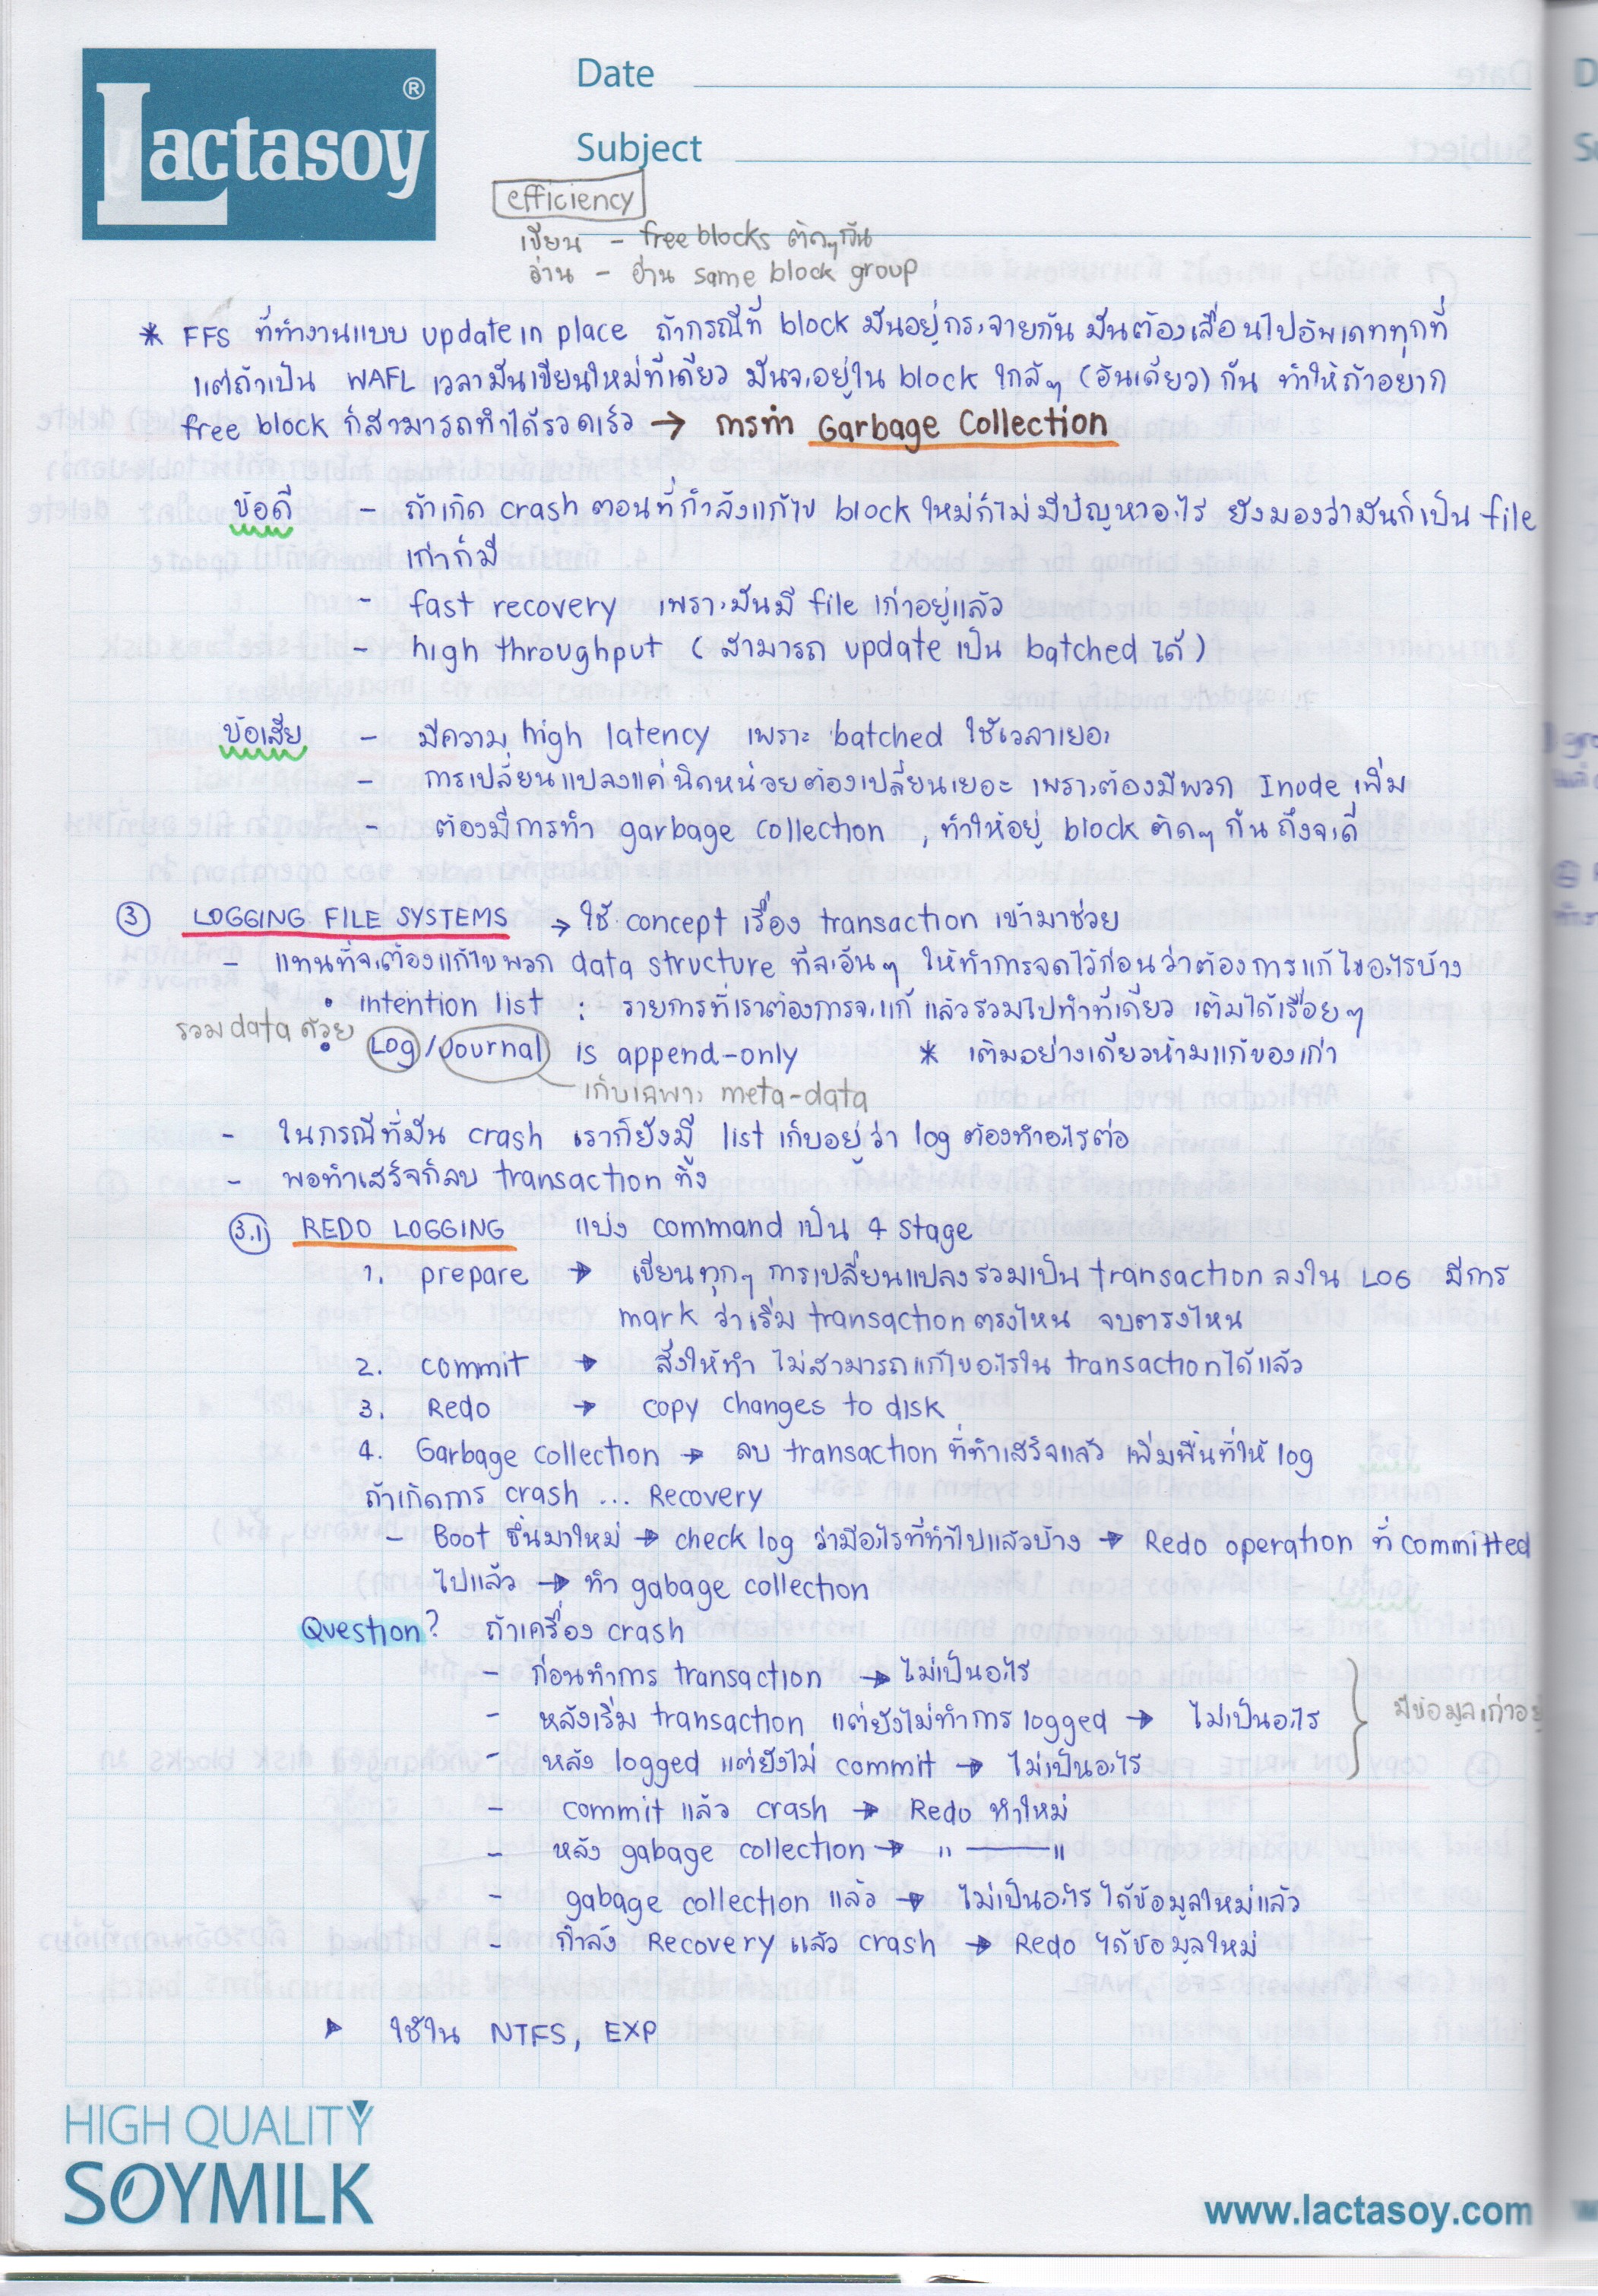 Lactasoy®
Date
Subject
efficiency
เขียน - free blocks ติดๆกัน
อ่าน - อ่าน same block group
* FFS ที่ทำงานแบบ update in place ถ้ากรณีที่ block มันอยู่กระจายกัน มันต้องเลื่อนไปอัพเดททุกที่
แต่ถ้าเป็น WAFL เวลามันเขียนใหม่ที่เดียว มันจะอยู่ใน block ใกล้ๆ (อันเดียว) กัน ทำให้ถ้าอยาก
free block ก็สามารถทำได้รวดเร็ว → การทำ Garbage Collection
ข้อดี - ถ้าเกิด crash ตอนที่กำลังแก้ไข block ใหม่ก็ไม่มีปัญหาอะไร ยังมองว่ามันก็เป็น file
เก่าก็มี
- fast recovery เพราะมันมี file เก่าอยู่แล้ว
- high throughput ( สามารถ update เป็น batched ได้ )
ข้อเสีย - มีความ high latency เพราะ batched ใช้เวลาเยอะ
- การเปลี่ยนแปลงแค่นิดหน่อยต้องเปลี่ยนเยอะ เพราะต้องมีพวก Inode เพิ่ม
- ต้องมีการทำ garbage collection , ทำให้อยู่ block ติดๆ กัน ถึงจะดี
③ LOGGING FILE SYSTEMS → ใช้ concept เรื่อง transaction เข้ามาช่วย
- แทนที่จะต้องแก้ไขพวก data structure ทีละอันๆ ให้ทำการจดไว้ก่อนว่าต้องการแก้ไขอะไรบ้าง
• intention list : รายการที่เราต้องการจะแก้ แล้วรวมไปทำทีเดียว เติมได้เรื่อยๆ
รวม data ด้วย
• Log / Journal is append-only * เติมอย่างเดียวห้ามแก้ของเก่า
เก็บเฉพาะ meta-data
- ในกรณีที่มัน crash เราก็ยังมี list เก็บอยู่ว่า log ต้องทำอะไรต่อ
- พอทำเสร็จก็ลบ transaction ทิ้ง
3.1 REDO LOGGING แบ่ง command เป็น 4 stage
1. prepare → เขียนทุกๆ การเปลี่ยนแปลงรวมเป็น transaction ลงใน LOG มีการ
mark ว่าเริ่ม transaction ตรงไหน จบตรงไหน
2. commit → สั่งให้ทำ ไม่สามารถแก้ไขอะไรใน transaction ได้แล้ว
3. Redo → copy changes to disk
4. Garbage collection → ลบ transaction ที่ทำเสร็จแล้ว เพิ่มพื้นที่ให้ log
ถ้าเกิดการ crash ... Recovery
- Boot ขึ้นมาใหม่ → check log ว่ามีอะไรที่ทำไปแล้วบ้าง → Redo operation ที่ committed
ไปแล้ว → ทำ gabage collection
Question? ถ้าเครื่อง crash
- ก่อนทำการ transaction → ไม่เป็นอะไร
- หลังเริ่ม transaction แต่ยังไม่ทำการ logged → ไม่เป็นอะไร
มีข้อมูลเก่าอยู่
- หลัง logged แต่ยังไม่ commit → ไม่เป็นอะไร
- commit แล้ว crash → Redo ทำใหม่
- หลัง gabage collection → " ——— "
- gabage collection แล้ว → ไม่เป็นอะไร ได้ข้อมูลใหม่แล้ว
- กำลัง Recovery แล้ว crash → Redo ได้ข้อมูลใหม่
▸ ใช้ใน NTFS, EXP
HIGH QUALITY
SOYMILK
www.lactasoy.com